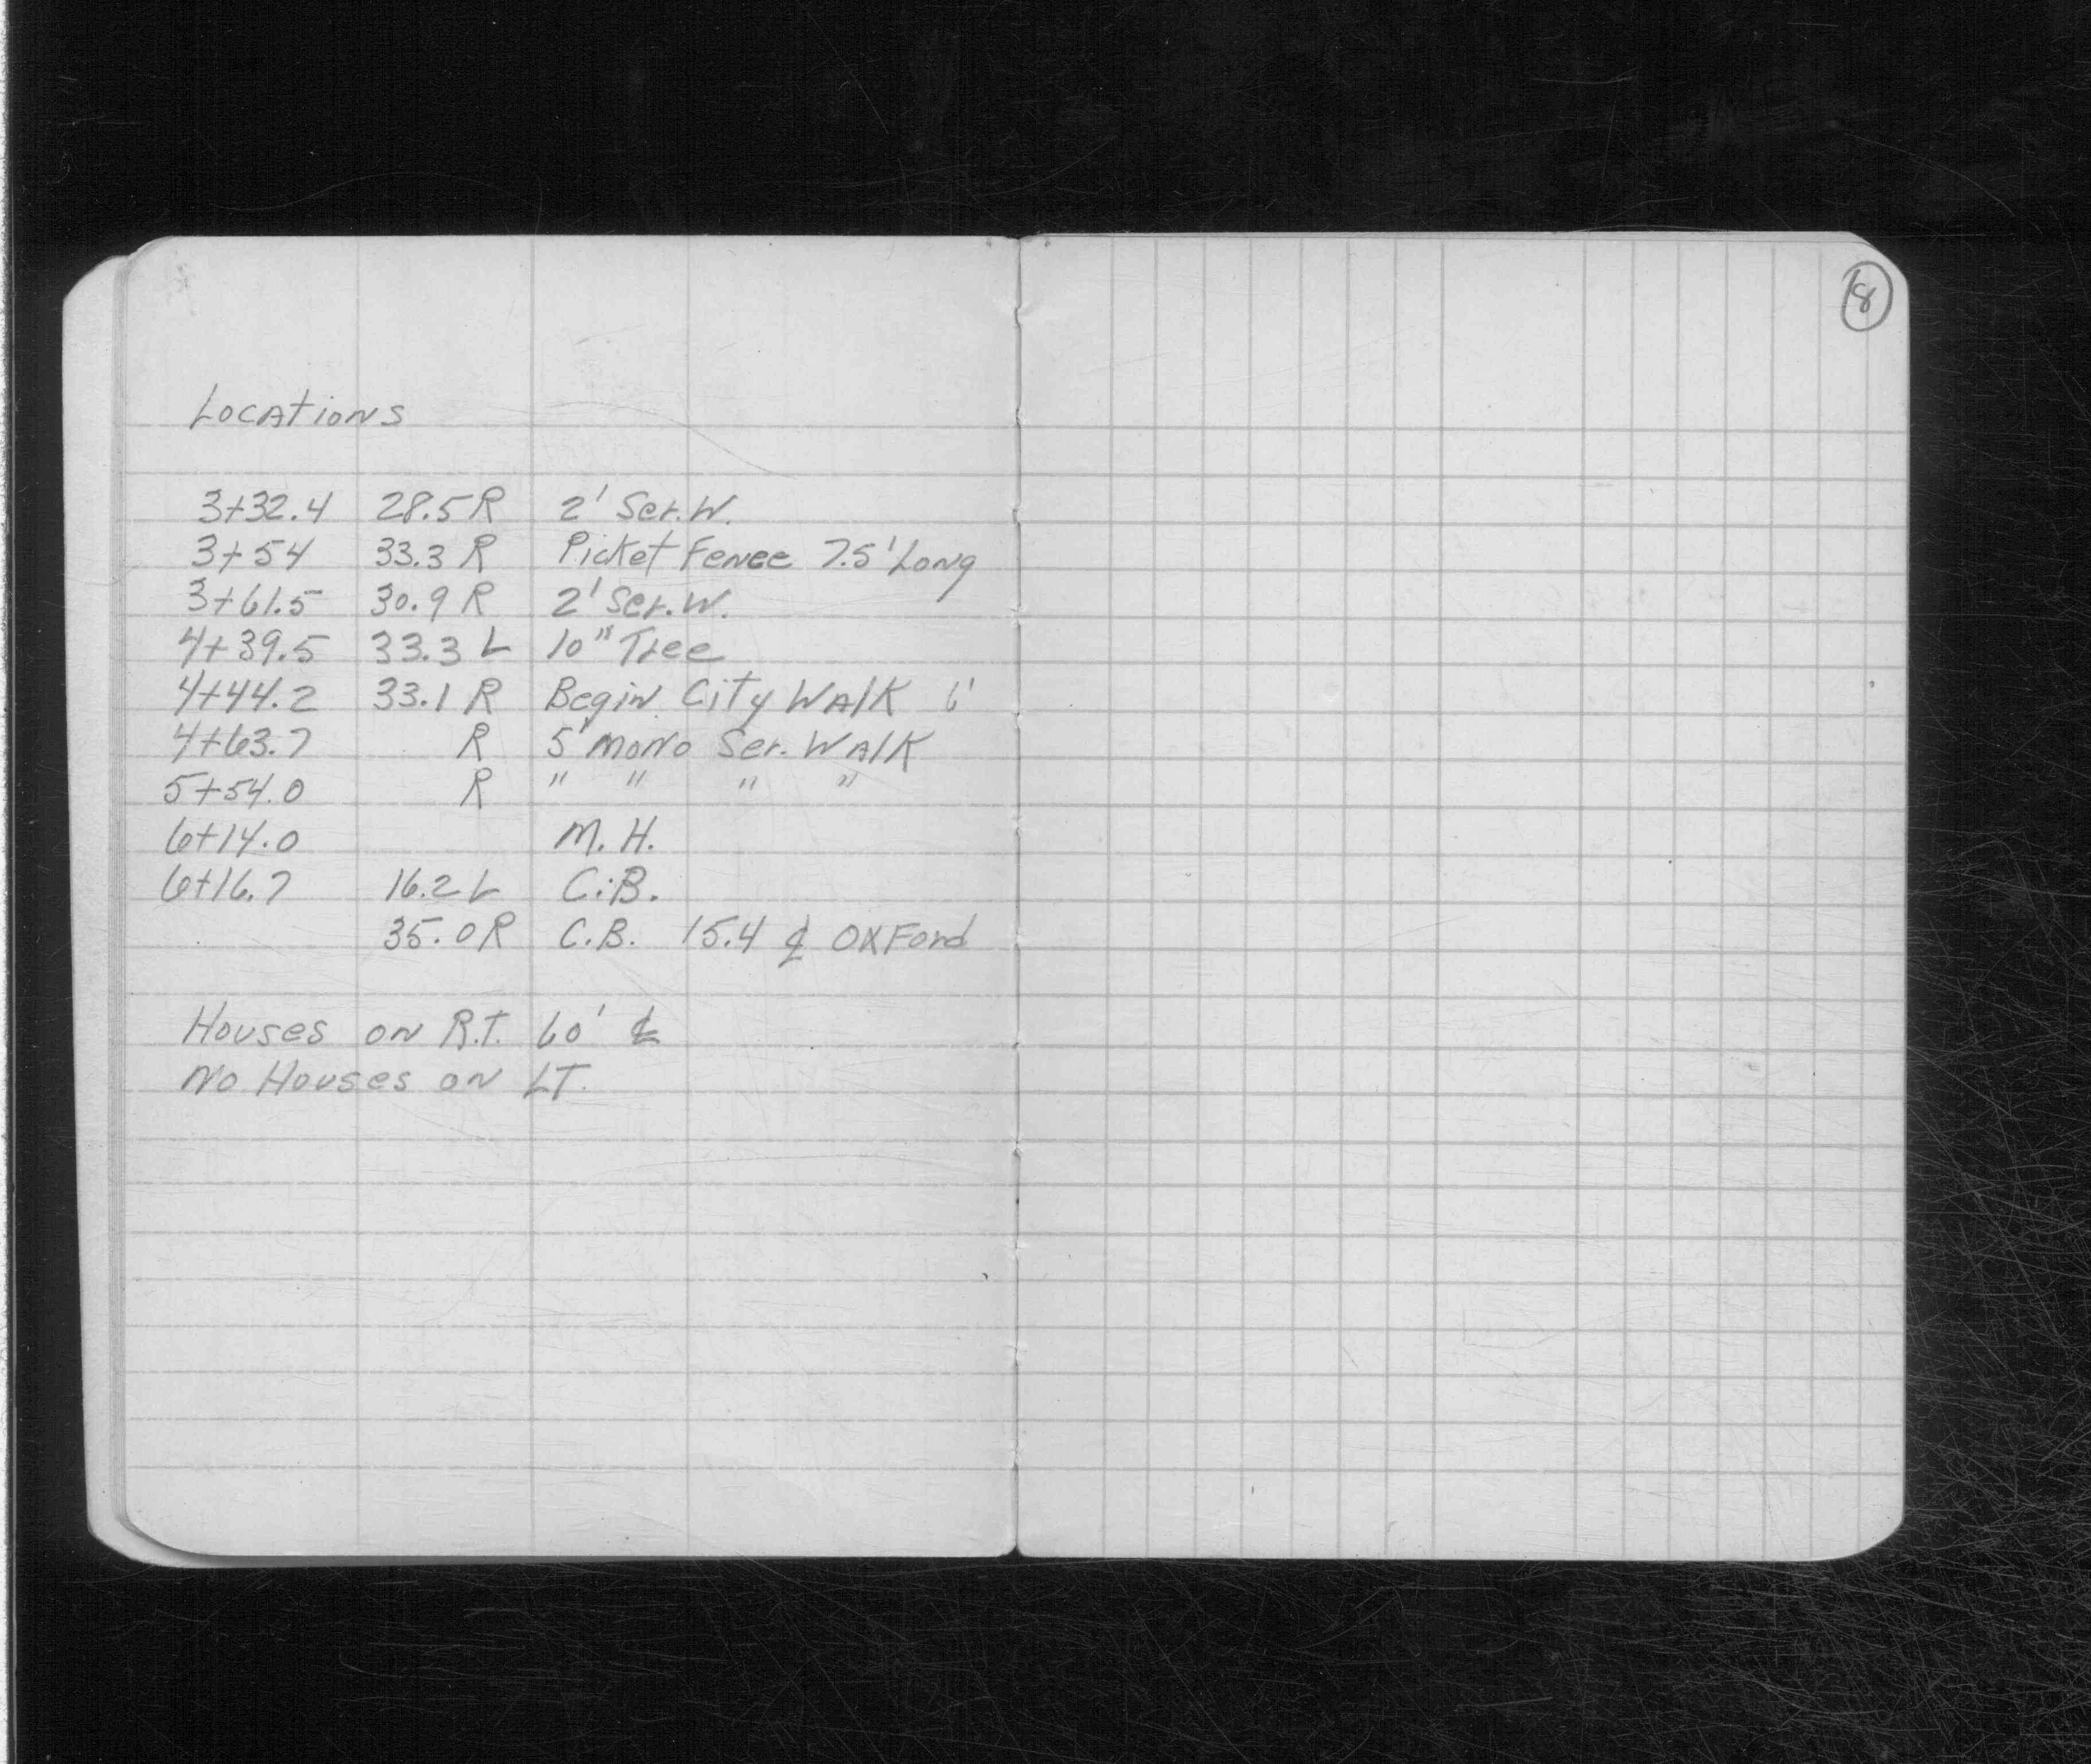 Locations
3+32.4 28.5 R 2' Ser. W.
3+54 33.3 R Picket Fence 7.5' Long
3+61.5 30.9 R 2' Ser. W.
4+39.5 33.3 L 10" Tree
4+44.2 33.1 R Begin City Walk 6'
4+63.7 R 5' Mono Ser. Walk
5+54.0 R " " " "
6+14.0 M.H.
6+16.7 16.2 L C.B.
35.0 R C.B. 15.4 ℄ Oxford
Houses on R.T. 60' ℄
No Houses on LT.
8